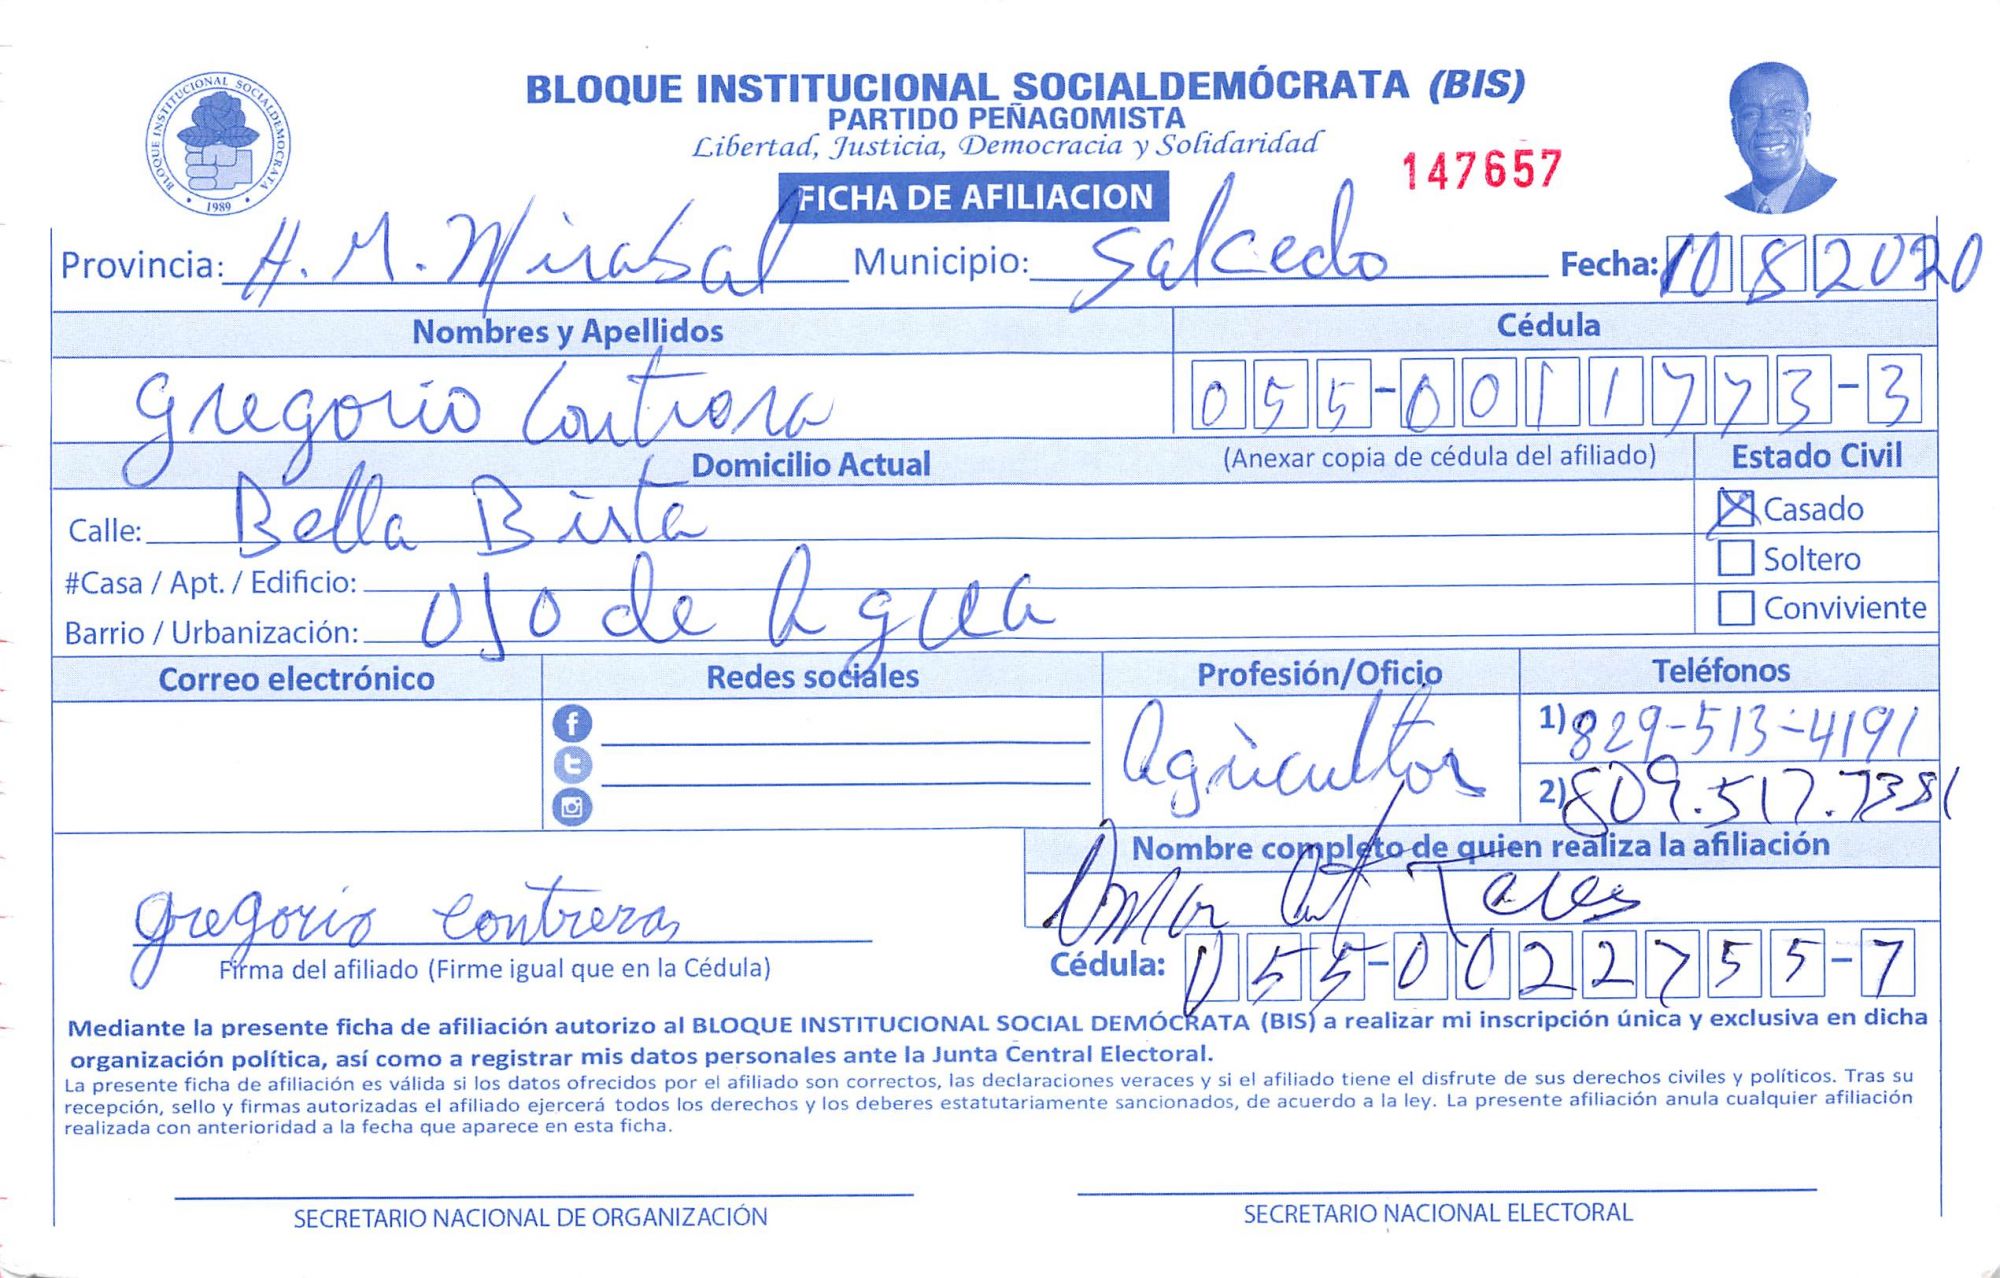 BLOQUE INSTITUCIONAL SOCIALDEMÓCRATA (BIS)
PARTIDO PEÑAGOMISTA
Libertad, Justicia, Democracia y Solidaridad
147657
FICHA DE AFILIACION
BLOQUE INSTITUCIONAL SOCIALDEMOCRATA
1989
Provincia: H. M. Mirabal Municipio: Salcedo Fecha: 10 8 2020
Nombres y Apellidos Cédula
Gregorio Controra 055-0011773-3
Domicilio Actual (Anexar copia de cédula del afiliado) Estado Civil
Calle: Bella Bista Casado
#Casa / Apt. / Edificio: Soltero
Barrio / Urbanización: Ojo de Agua Conviviente
Correo electrónico Redes sociales Profesión/Oficio Teléfonos
Agricultor 1) 829-513-4191
2) 809.517.7381
Nombre completo de quien realiza la afiliación
Omar
Gregorio Contreras
Firma del afiliado (Firme igual que en la Cédula) Cédula: 055-0022755-7
Mediante la presente ficha de afiliación autorizo al BLOQUE INSTITUCIONAL SOCIAL DEMÓCRATA (BIS) a realizar mi inscripción única y exclusiva en dicha
organización política, así como a registrar mis datos personales ante la Junta Central Electoral.
La presente ficha de afiliación es válida si los datos ofrecidos por el afiliado son correctos, las declaraciones veraces y si el afiliado tiene el disfrute de sus derechos civiles y políticos. Tras su
recepción, sello y firmas autorizadas el afiliado ejercerá todos los derechos y los deberes estatutariamente sancionados, de acuerdo a la ley. La presente afiliación anula cualquier afiliación
realizada con anterioridad a la fecha que aparece en esta ficha.
SECRETARIO NACIONAL DE ORGANIZACIÓN SECRETARIO NACIONAL ELECTORAL